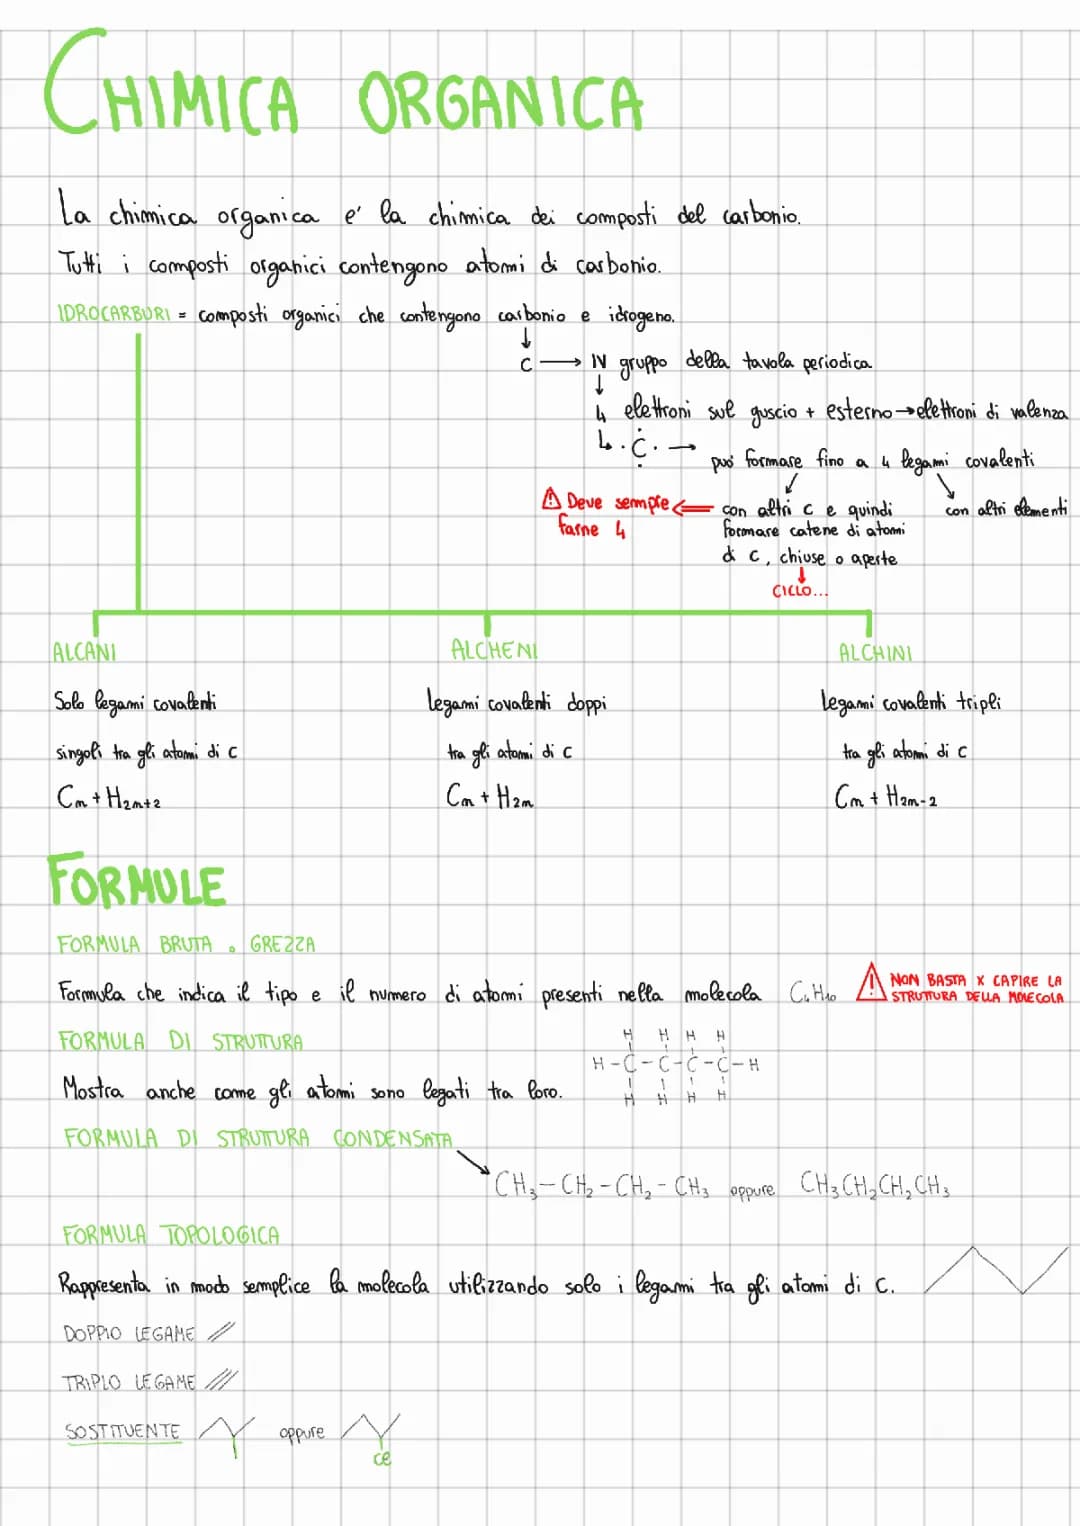 CHIMICA ORGANICA
La chimica organica e' la chimica dei composti del carbonio.
Tutti i composti organici contengono atomi di carbonio.
IDROCARBURI = composti organici che contengono carbonio e idrogeno.
↓
C → IV gruppo della tavola periodica
↓
4 elettroni sul guscio + esterno → elettroni di valenza
↳ ·C· → può formare fino a 4 legami covalenti
⚠ Deve sempre ⇐ con altri C e quindi con altri elementi
farne 4 formare catene di atomi
di C, chiuse o aperte
↓
CICLO...
ALCANI ALCHENI ALCHINI
Solo legami covalenti legami covalenti doppi legami covalenti tripli
singoli tra gli atomi di C tra gli atomi di C tra gli atomi di C
Cn + H2n+2 Cn + H2n Cn + H2n-2
FORMULE
FORMULA BRUTA o GREZZA
Formula che indica il tipo e il numero di atomi presenti nella molecola C4H10 ⚠ NON BASTA X CAPIRE LA
STRUTTURA DELLA MOLECOLA
FORMULA DI STRUTTURA
H H H H
H-C-C-C-C-H
Mostra anche come gli atomi sono legati tra loro.
H H H H
FORMULA DI STRUTTURA CONDENSATA
CH3-CH2-CH2-CH3 oppure CH3CH2CH2CH3
FORMULA TOPOLOGICA
Rappresenta in modo semplice la molecola utilizzando solo i legami tra gli atomi di C.
DOPPIO LEGAME //
TRIPLO LEGAME ///
SOSTITUENTE oppure
Cl